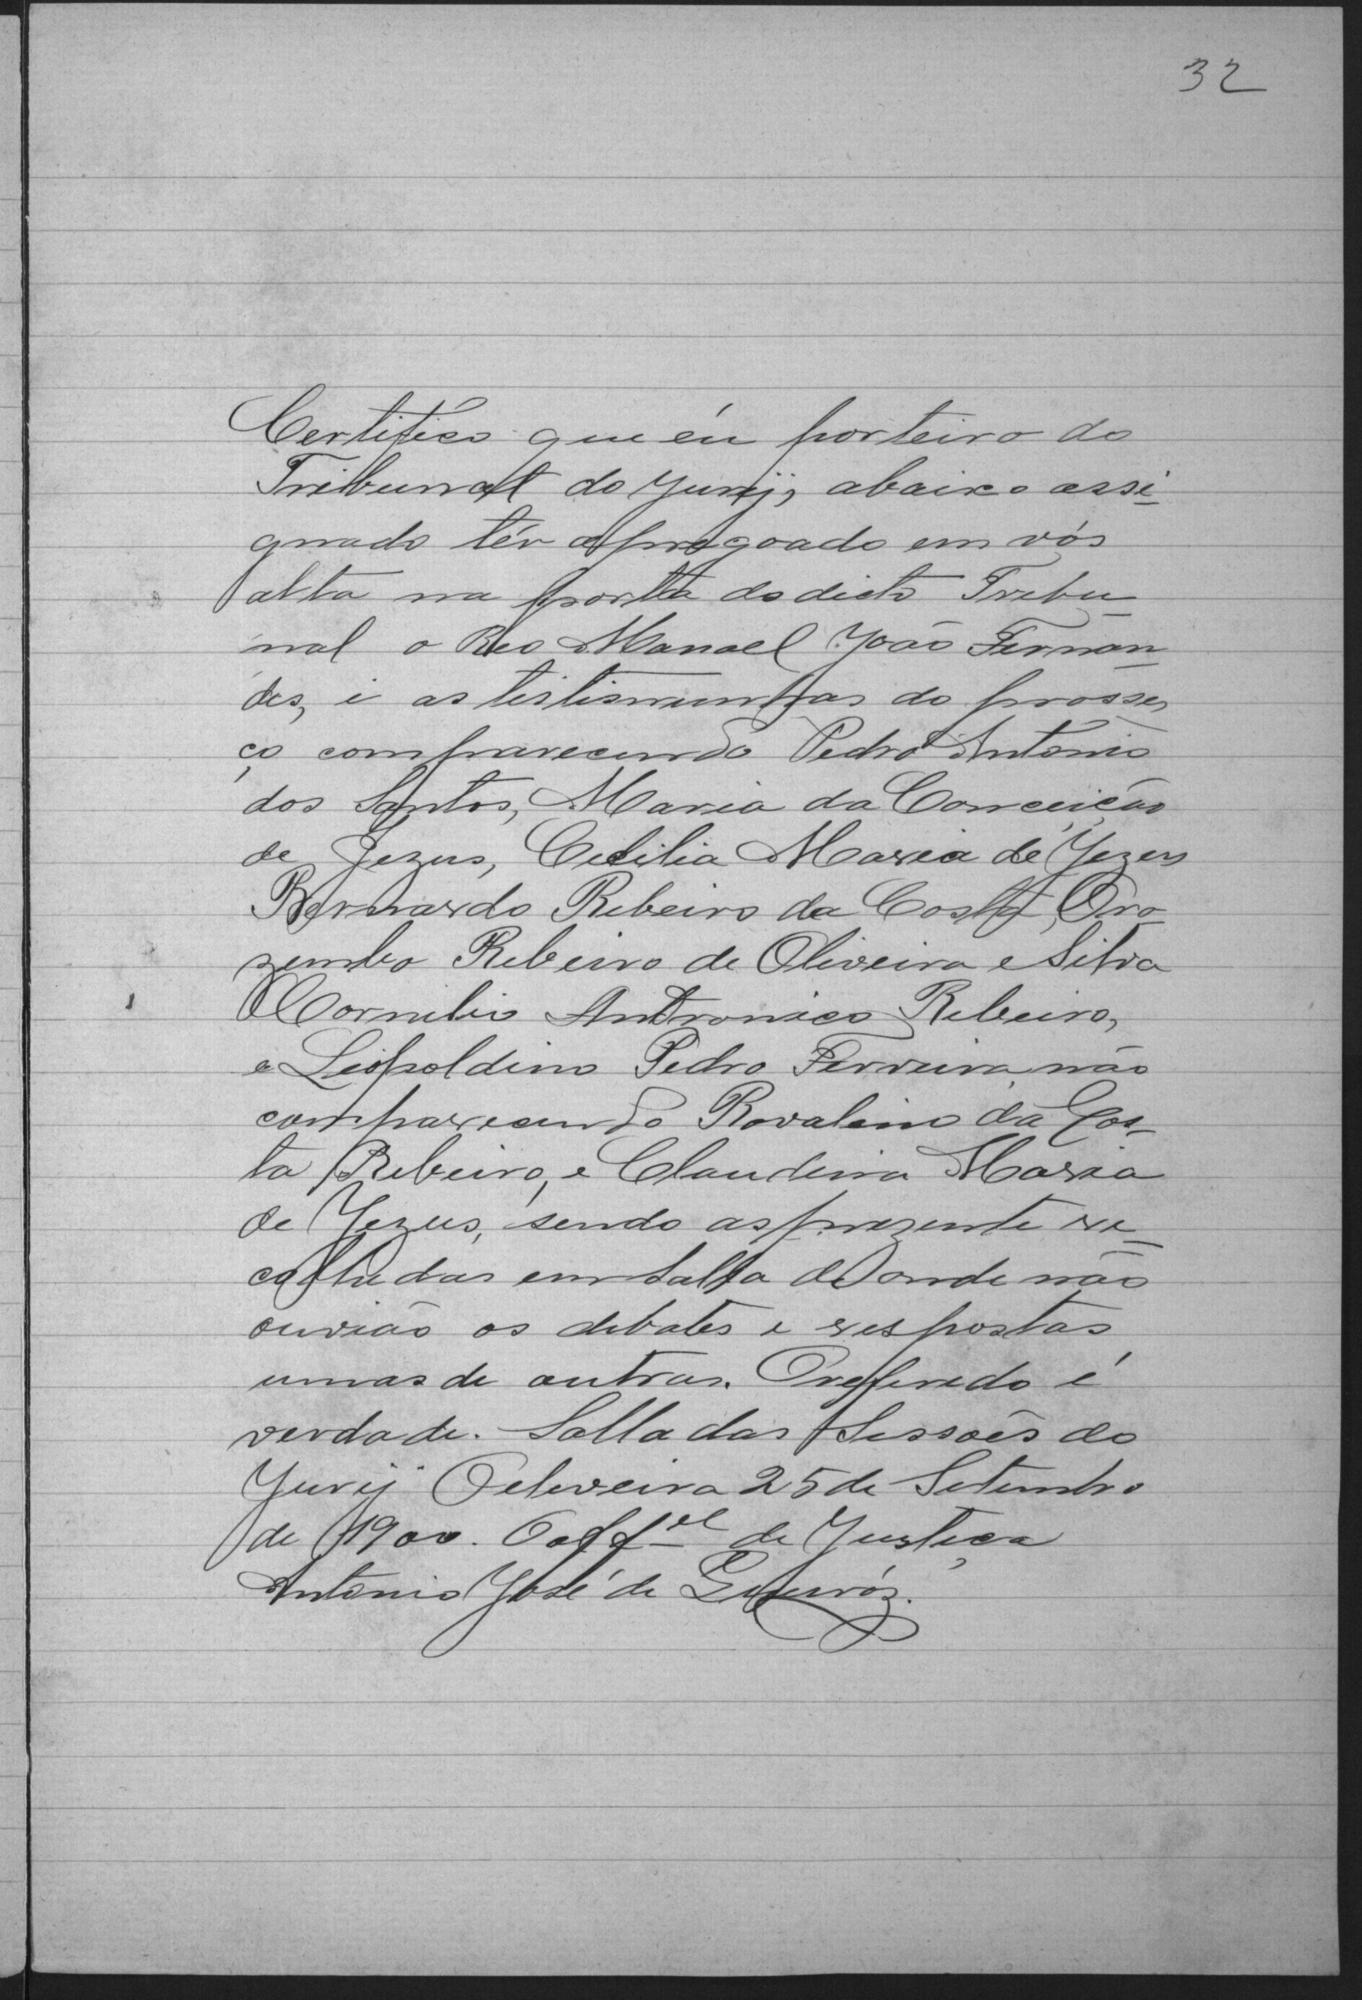 32
Certifico que eu porteiro do
Tribunal do Jurij, abaixo assi-
gnado tér apregoado em vós
alta na porta do dicto Tribu-
nal o Reo Manoel João Fernan-
des, e as testismunhas do prosses
ço comparecendo Pedro Antonio
dos Santos, Maria da Conceição
de Jezus, Cecilia Maria de Jezus
Bernardo Ribeiro da Costa, Oro
zembo Ribeiro de Oliveira e Silva
Cornelio Antronico Ribeiro,
e Leopoldino Pedro Ferreira não
comparecendo Rovalino da Cos-
ta Ribeiro, e Claudina Maria
de Jezus, sendo as prezente re-
colhidas em salla de onde não
ouvião os debates e respostas
umas de outras. O referido é
verdade. Salla das Sessões do
Jurij Oeliveira 25 de Setembro
de 1900. O off.el de Justiça
Antonio José de Queiróz.